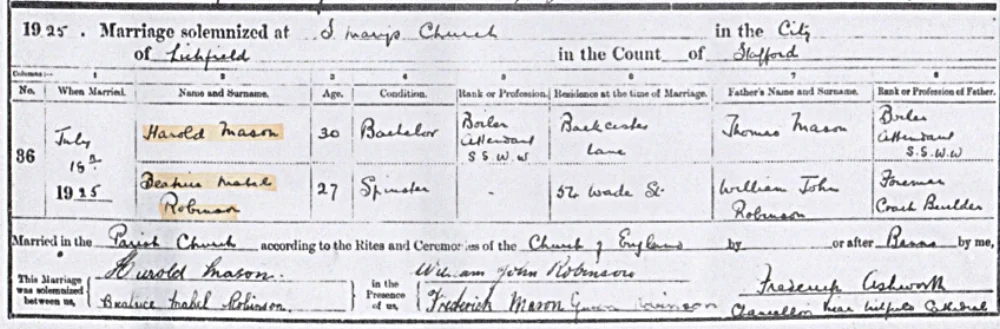 1925. Marriage solemnized at S. Mary's Church in the City
of Lichfield in the Count of Stafford
Columns:— 1 2 3 4 5 6 7 8
No. When Married. Name and Surname. Age. Condition. Rank or Profession. Residence at the time of Marriage. Father's Name and Surname. Rank or Profession of Father.
86 July 18th 1925
Harold Mason 30 Bachelor Boiler Attendant S.S.W.W Backcester Lane Thomas Mason Boiler Attendant S.S.W.W
Beatrice Mabel Robinson 27 Spinster - 52 Wade St. William John Robinson Foreman Coach Builder
Married in the Parish Church according to the Rites and Ceremonies of the Church of England by or after Banns by me,
This Marriage was solemnized between us,
Harold Mason.
Beatrice Mabel Robinson.
in the Presence of us,
William John Robinson
Frederick Mason
Frederick Ashworth
Cathedral